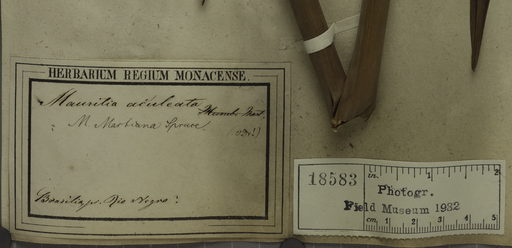 HERBARIUM REGIUM MONACENSE.
Mauritia aculeata Humb. Mart.
M Martiana Spruce.
Brasilia, pr. Rio Negro.
18583
in. 1 2
Photogr.
Field Museum 1932
cm. 1 2 3 4 5